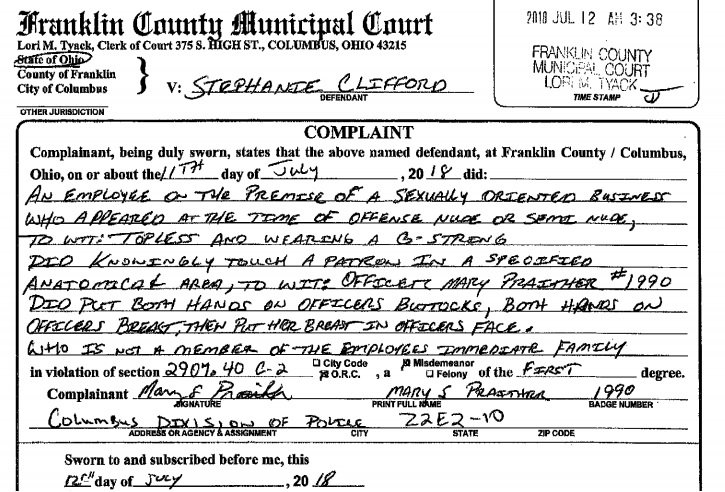 Franklin County Municipal Court
Lori M. Tyack, Clerk of Court 375 S. HIGH ST., COLUMBUS, OHIO 43215
State of Ohio
County of Franklin
City of Columbus
} V: STEPHANIE CLIFFORD
DEFENDANT
OTHER JURISDICTION
2018 JUL 12 AM 3:38
FRANKLIN COUNTY
MUNICIPAL COURT
LORI M. TYACK
TIME STAMP
COMPLAINT
Complainant, being duly sworn, states that the above named defendant, at Franklin County / Columbus,
Ohio, on or about the 11TH day of July, 2018 did:
AN EMPLOYEE ON THE PREMISE OF A SEXUALLY ORIENTED BUSINESS
WHO APPEARED AT THE TIME OF OFFENSE NUDE OR SEMI NUDE,
TO WIT: TOPLESS AND WEARING A G-STRING
DID KNOWINGLY TOUCH A PATRON IN A SPECIFIED
ANATOMICAL AREA, TO WIT: OFFICER MARY PRAITHER #1990
DID PUT BOTH HANDS ON OFFICERS BUTTOCKS, BOTH HANDS ON
OFFICERS BREAST, THEN PUT HER BREAST IN OFFICERS FACE.
WHO IS NOT A MEMBER OF THE EMPLOYEES IMMEDIATE FAMILY
in violation of section 2907.40 C-2 City Code O.R.C., a Misdemeanor Felony of the FIRST degree.
Complainant Mary S Praither MARY S PRAITHER 1990
SIGNATURE PRINT FULL NAME BADGE NUMBER
COLUMBUS DIVISION OF POLICE Z2E2-10
ADDRESS OR AGENCY & ASSIGNMENT CITY STATE ZIP CODE
Sworn to and subscribed before me, this
12TH day of JULY, 2018